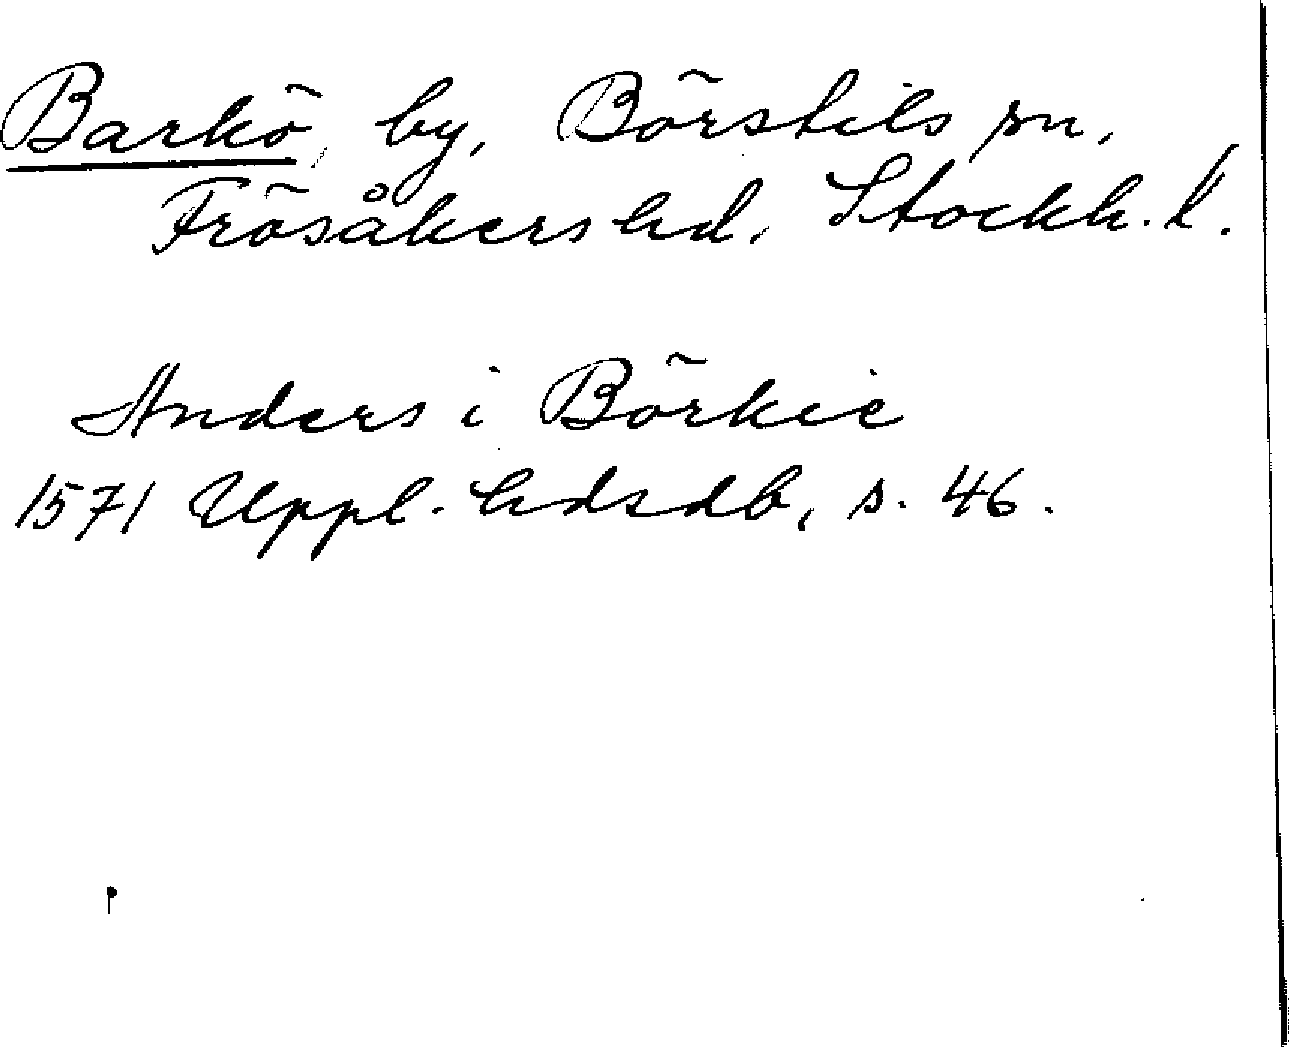 Barkö, by, Börstils sn,
Frösåkers hd. Stockh. l.
Anders i Börkie
1571 Uppl. hdsdb, s. 46.